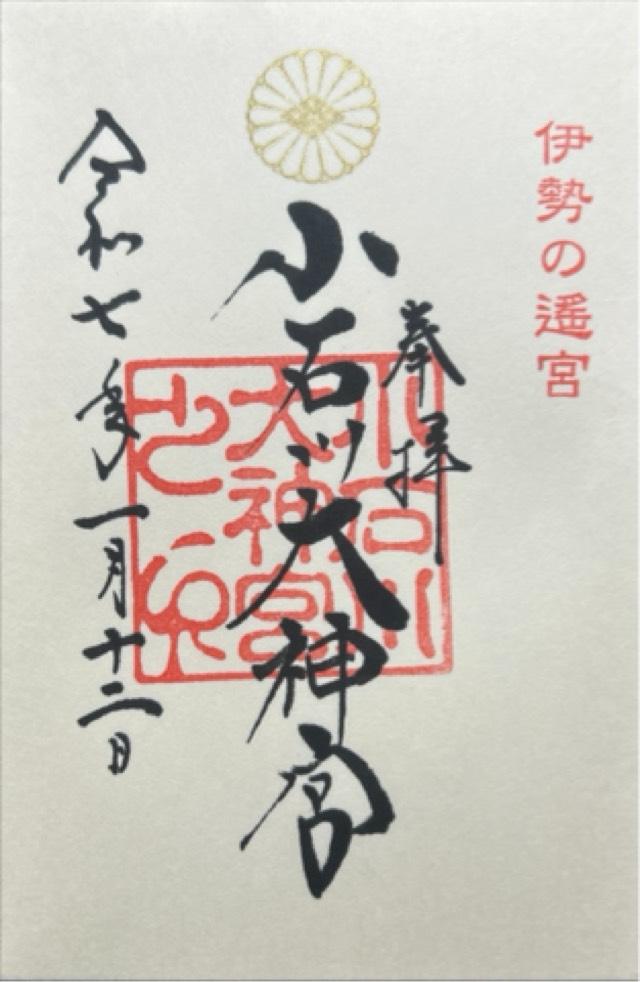 伊勢の遙宮
奉拝
小石川大神宮
小石川
大神宮
之印
令和七年一月十二日